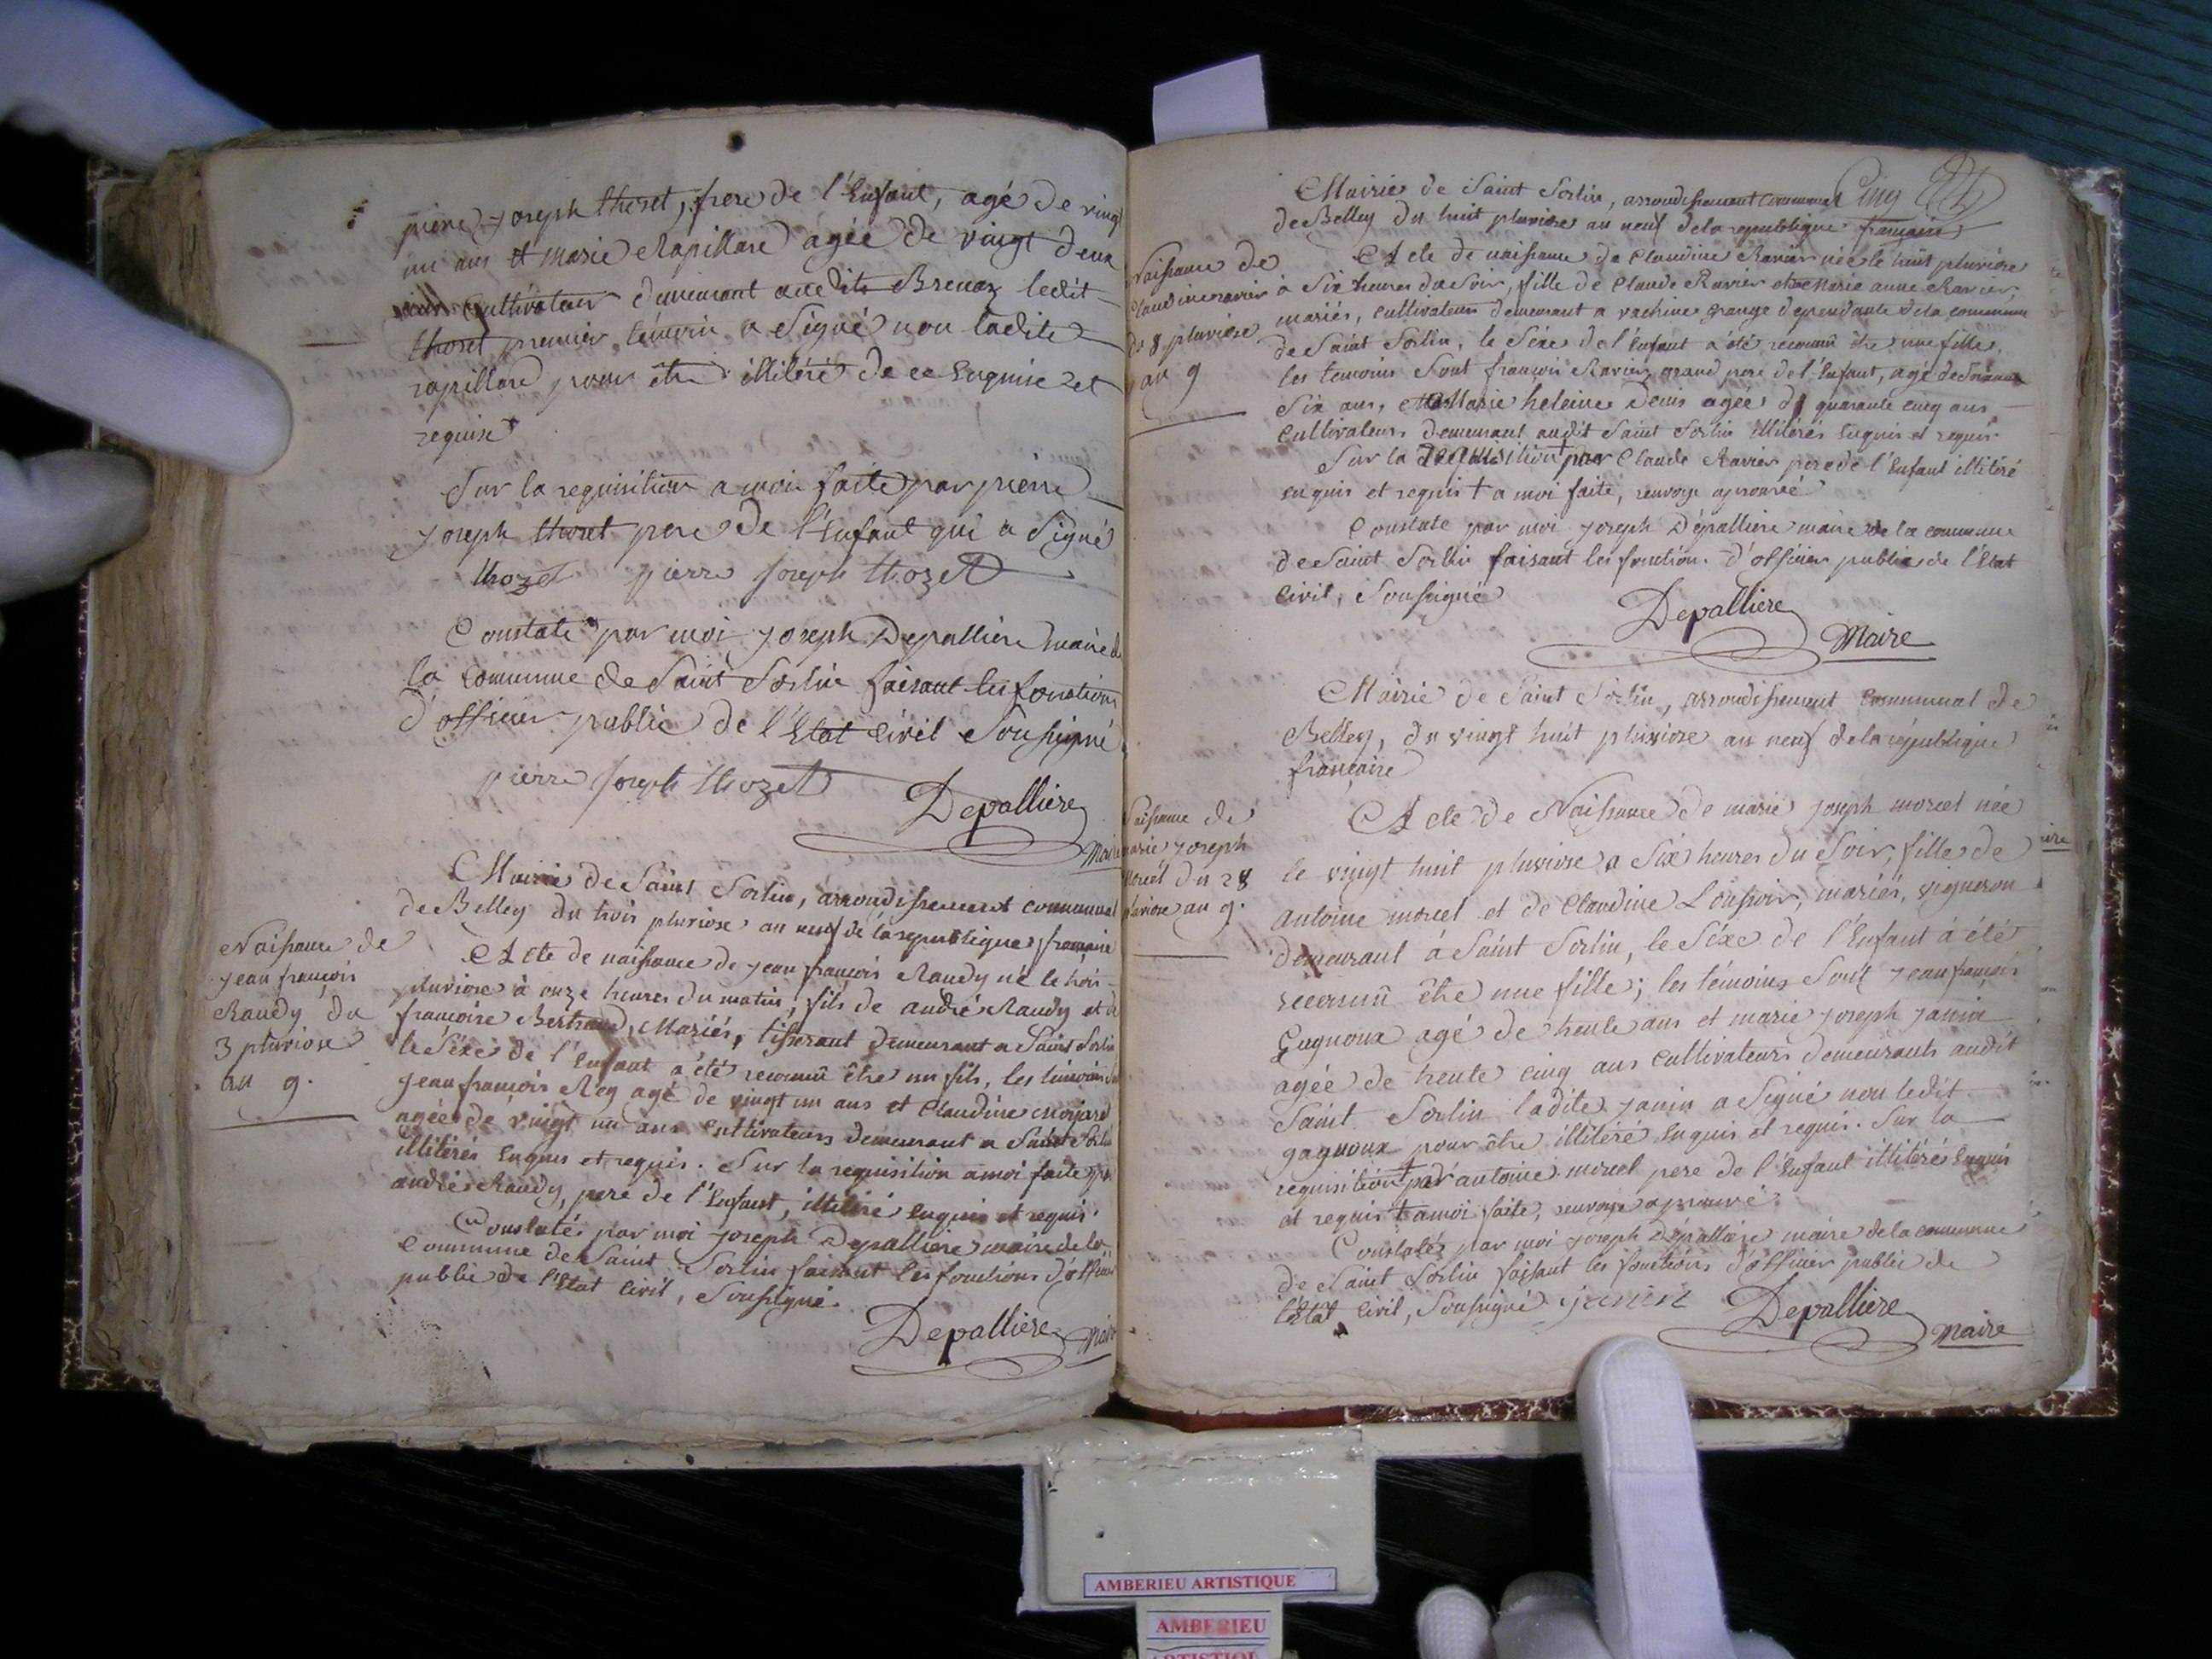 pierre joseph thozet, pere de l'Enfant, agé de vingt
un ans et marie Rapillard agée de vingt deux
cultivateur demeurant audit Brenaz ledit
thozet premier témoin a Signé non ladite
rapillard pour être illitéré de ce Enquise et
requise
Sur la requisition a moi faite par pierre
joseph thozet pere de l'Enfant qui a Signé
thozet pierre Joseph thozet
Constaté par moi joseph Depalliere maire de
la Commune de Saint Sorlin faisant les fonctions
d'officier public de l'Etat Civil Soussigné
pierre Joseph thozet
Depalliere
Maire
Mairie de Saint Sorlin, arrondissement communal
de Belley du trois pluviose an neuf de la republique française
Naissance de
jean françois
Raudy du
3 pluviose
an 9.
Acte de naissance de jean françois Raudy né le trois
pluviose à onze heures du matin, fils de andré Raudy et de
françoise Bertrand, Mariés, tisserant demeurant a Saint Sorlin
le Séxe de l'Enfant a été reconnû être un fils, les témoins
jean françois Rey agé de vingt un ans et Claudine
agée de vingt un ans Cultivateurs demeurant a Saint Sorlin
illitérés Enquis et requis. Sur la requisition a moi faite par
andré Raudy, pere de l'Enfant, illitéré Enquis et requis.
Constaté par moi joseph Depalliere maire de la
Commune de Saint Sorlin faisant les fonctions d'officier
public de l'Etat Civil, Soussigné.
Depalliere Maire
Cinq
Mairie de Saint Sorlin, arrondissement communal
de Belley du huit pluviose an neuf de la republique française
Naissance de
Claudine ravier
du 8 pluviose
an 9
Acte de naissance de Claudine Ravier née le huit pluviose
à Six heures du Soir, fille de Claude Ravier et de Marie anne Ravier,
mariés, cultivateurs demeurant a vachine grange dependante de la commune
de Saint Sorlin, le Séxe de l'Enfant a été reconnû être une fille.
les temoins Sont françois Ravier grand pere de l'Enfant, agé de Soixante
Six ans, et Marie heleine Denis agée de quarante cinq ans
Cultivateurs demeurant audit Saint Sorlin illitérés Enquis et requis.
Sur la requisition par Claude Ravier pere de l'Enfant illitéré
enquis et requis + a moi faite, renvoye aprouvé
Constaté par moi joseph Dépalliere maire de la commune
de Saint Sorlin faisant les fonction. d'officier public de l'Etat
Civil, Soussigné
Depalliere
Maire
Mairie de Saint Sorlin, arrondissement Communal de
Belley, du vingt huit pluviose an neuf de la république
française
Naissance de
marie joseph
morcel du 28
pluviose an 9.
Acte de Naissance de marie joseph morcel née
le vingt huit pluviose a Six heures du Soir, fille de
antoine morcel et de Claudine mariés, vigneron
demeurant à Saint Sorlin, le Séxe de l'Enfant à été
reconnû être une fille; les témoins Sont jean françois
Gagnoux agé de trente ans et marie joseph janin
agée de trente cinq ans cultivateurs demeurants audit
Saint Sorlin ladite janin a Signé non ledit
gagnoux pour être illitéré Enquis et requis. Sur la
requisition + par antoine morcel pere de l'Enfant illitéré Enquis
et requis + a moi faite, renvoye aprouvé.
Constaté par moi joseph Dépalliere maire de la commune
de Saint Sorlin faisant les fonctions d'officier public de
l'Etat Civil, Soussigné janin Depalliere
Maire
AMBERIEU ARTISTIQUE
AMBERIEU
ARTISTIQUE